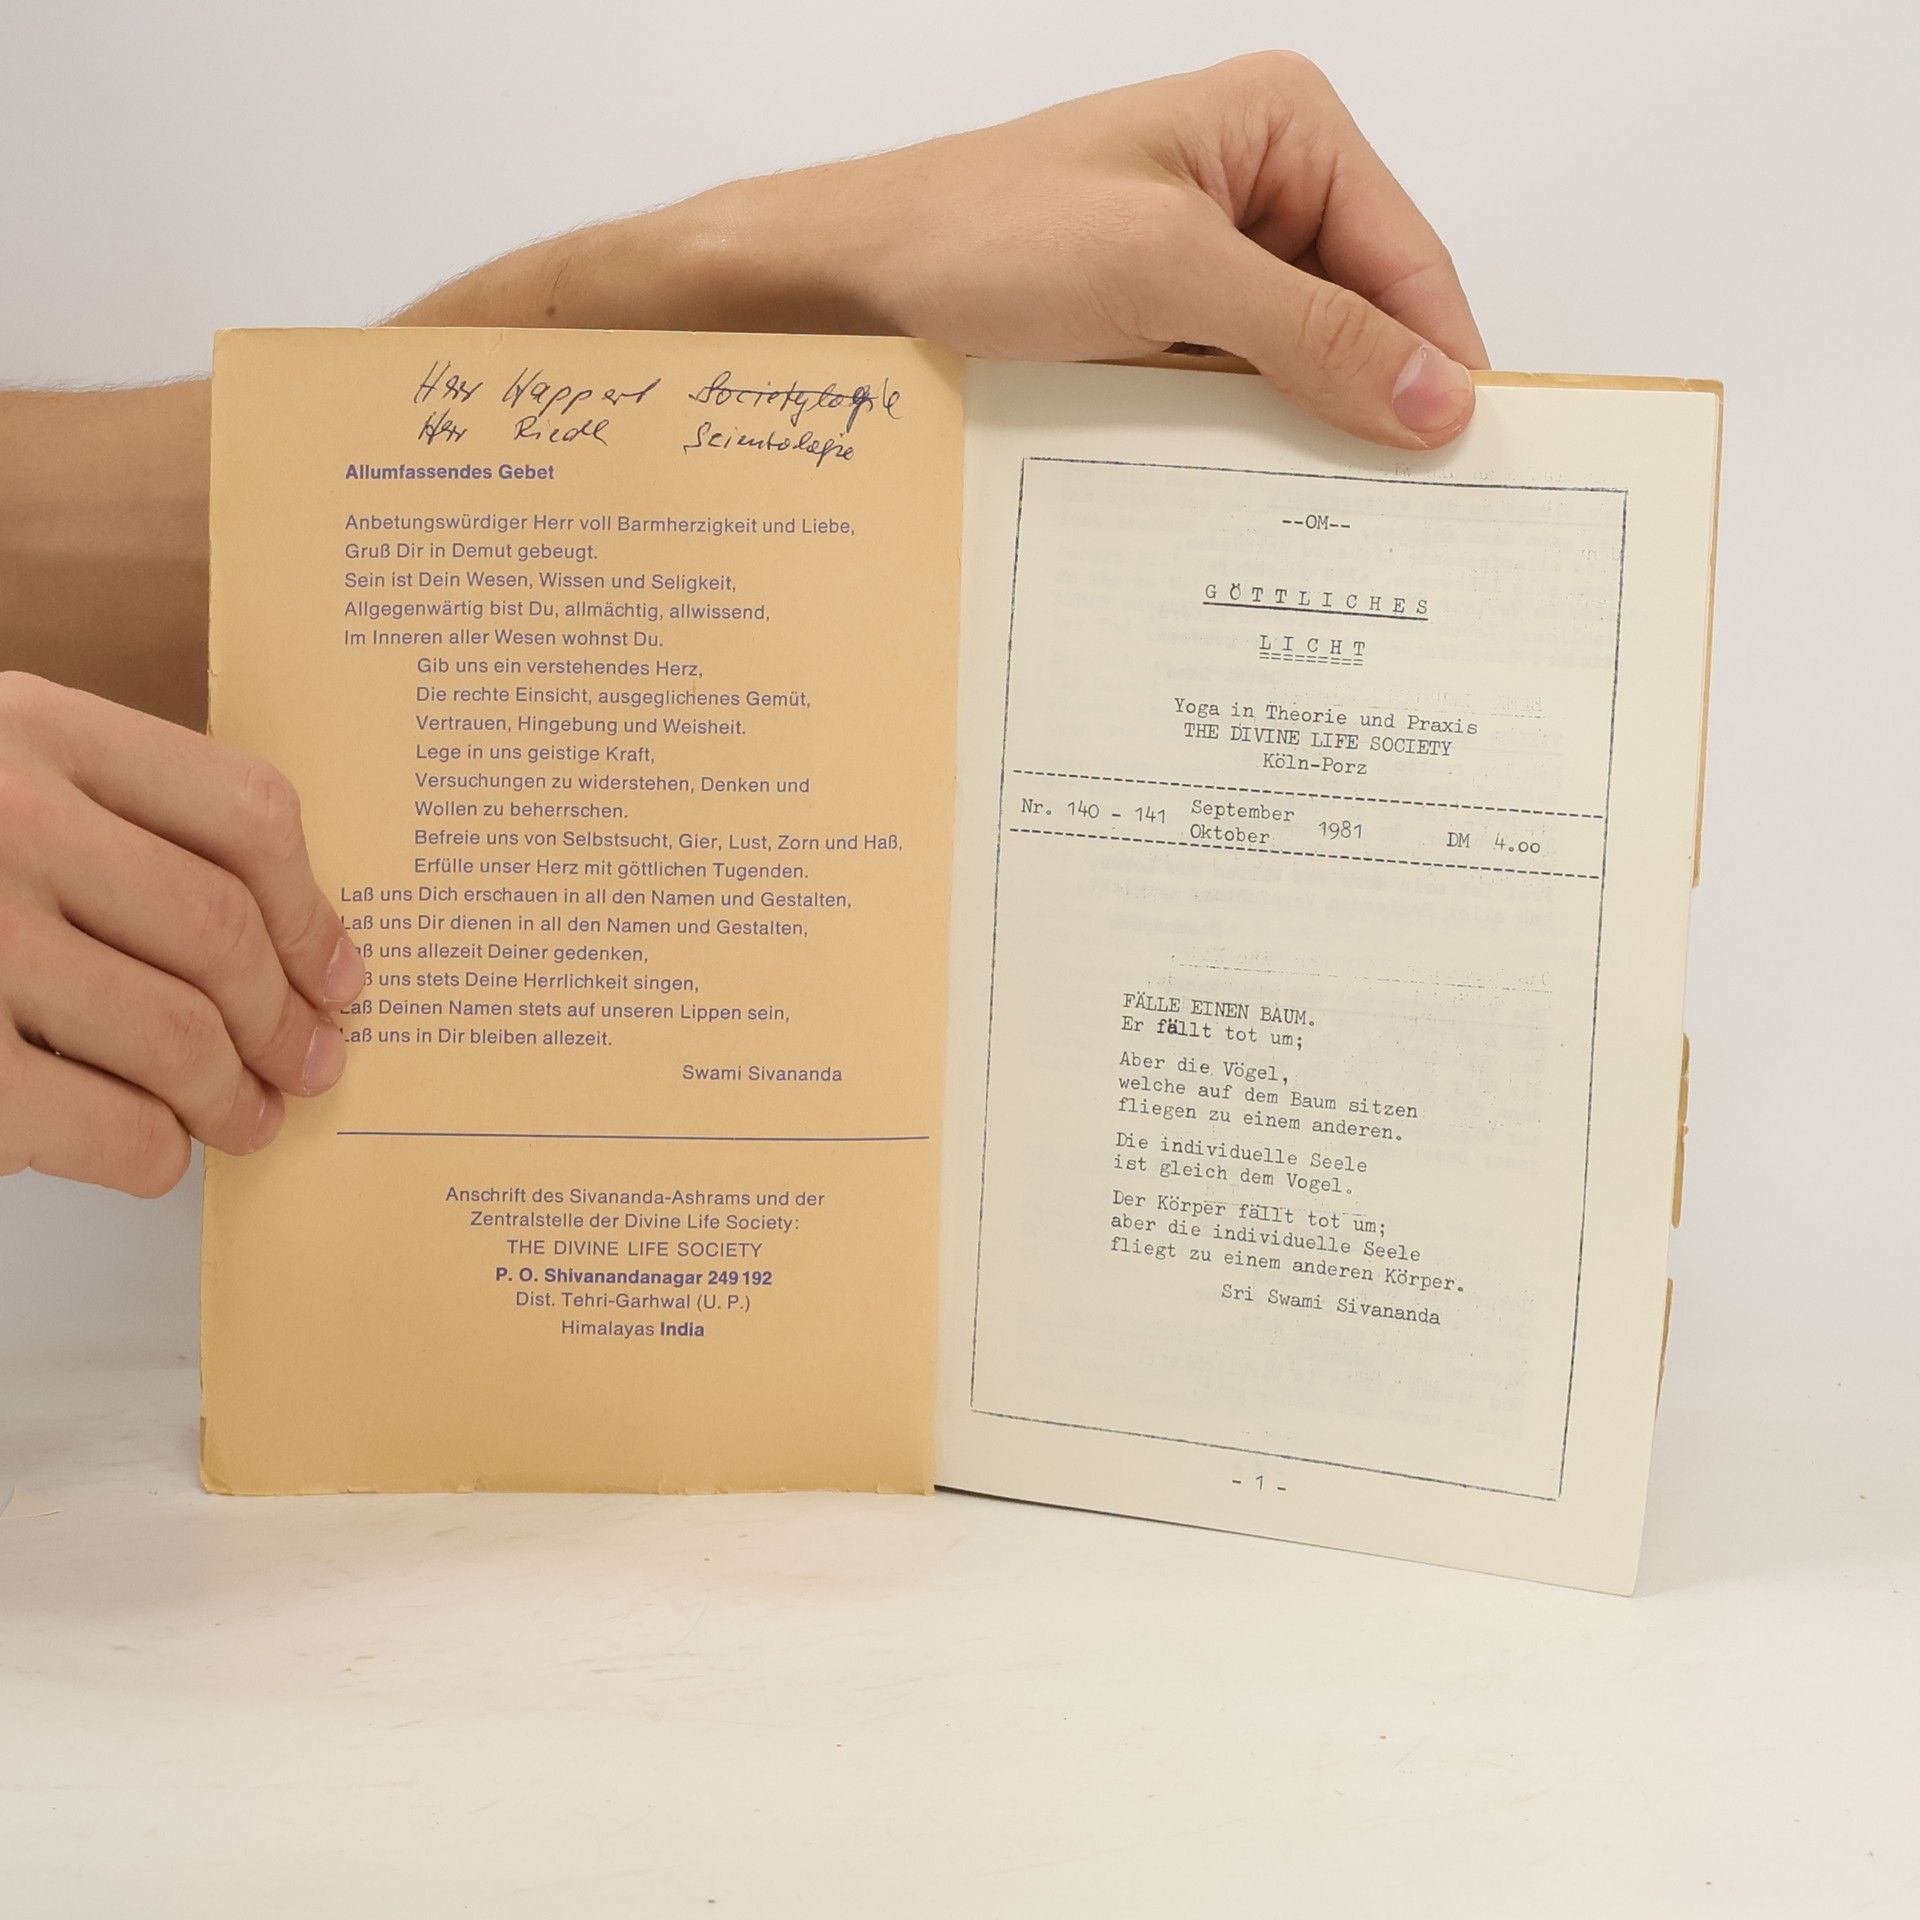 Herr Happert Societylogie
Herr Riedl Scientologie
Allumfassendes Gebet
Anbetungswürdiger Herr voll Barmherzigkeit und Liebe,
Gruß Dir in Demut gebeugt.
Sein ist Dein Wesen, Wissen und Seligkeit,
Allgegenwärtig bist Du, allmächtig, allwissend,
Im Inneren aller Wesen wohnst Du.
Gib uns ein verstehendes Herz,
Die rechte Einsicht, ausgeglichenes Gemüt,
Vertrauen, Hingebung und Weisheit.
Lege in uns geistige Kraft,
Versuchungen zu widerstehen, Denken und
Wollen zu beherrschen.
Befreie uns von Selbstsucht, Gier, Lust, Zorn und Haß.
Erfülle unser Herz mit göttlichen Tugenden.
Laß uns Dich erschauen in all den Namen und Gestalten,
Laß uns Dir dienen in all den Namen und Gestalten,
Laß uns allezeit Deiner gedenken,
Laß uns stets Deine Herrlichkeit singen,
Laß Deinen Namen stets auf unseren Lippen sein,
Laß uns in Dir bleiben allezeit.
Swami Sivananda
Anschrift des Sivananda-Ashrams und der
Zentralstelle der Divine Life Society:
THE DIVINE LIFE SOCIETY
P. O. Shivanandanagar 249192
Dist. Tehri-Garhwal (U. P.)
Himalayas India
--OM--
GÖTTLICHES
LICHT
Yoga in Theorie und Praxis
THE DIVINE LIFE SOCIETY
Köln-Porz
Nr. 140 - 141 September Oktober 1981 DM 4.00
FÄLLE EINEN BAUM.
Er fällt tot um;
Aber die Vögel,
welche auf dem Baum sitzen
fliegen zu einem anderen.
Die individuelle Seele
ist gleich dem Vogel.
Der Körper fällt tot um;
aber die individuelle Seele
fliegt zu einem anderen Körper.
Sri Swami Sivananda
- 1 -